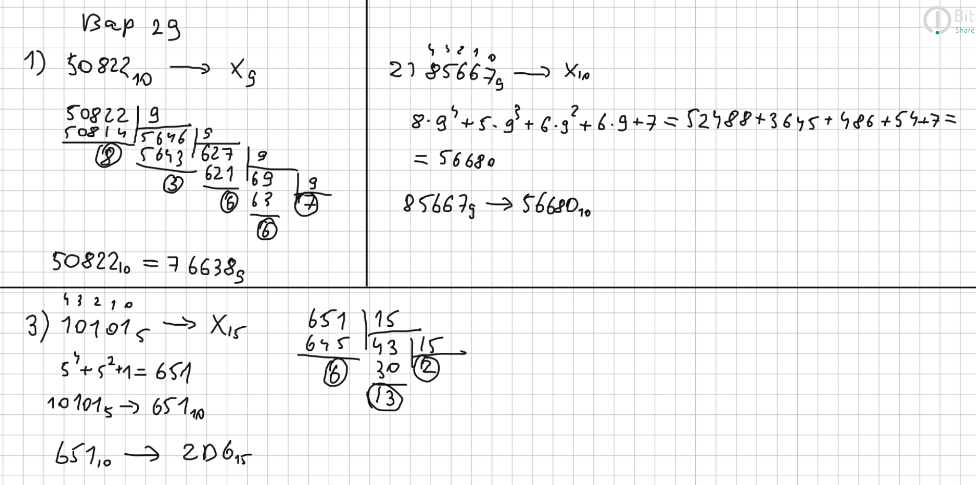 Вар 29
1) 50822₁₀ → X₉
50822 | 9
50814 | 5646 | 9
8 5643 | 627 | 9
3 621 | 69 | 9
6 63 7
6
50822₁₀ = 76638₉
4 3 2 1 0
2) 85667₉ → X₁₀
8·9⁴+5·9³+6·9²+6·9+7=52488+3645+486+54+7=
= 56680
85667₉ → 56680₁₀
4 3 2 1 0
3) 10101₅ → X₁₅
5⁴+5²+1=651
10101₅ → 651₁₀
651₁₀ → 2D6₁₅
651 | 15
645 | 43 | 15
6 30 2
13
Bit
Share